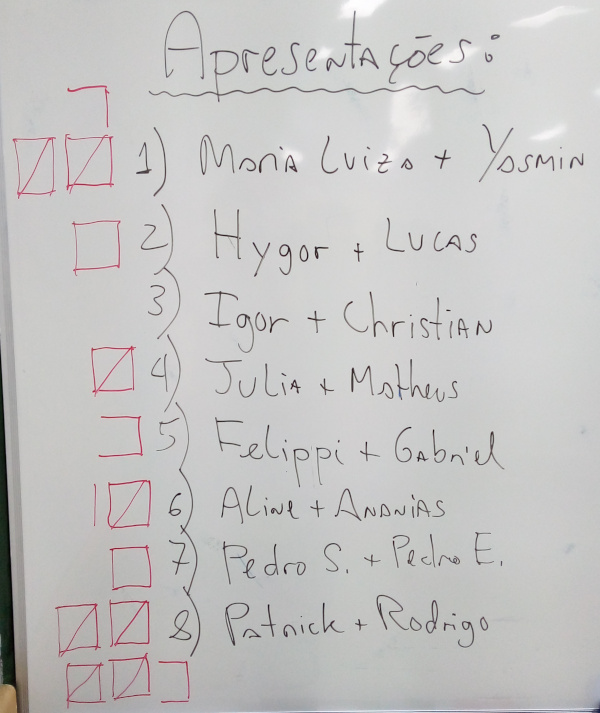 Apresentações:
1) Maria Luiza + Yasmin
2) Hygor + Lucas
3) Igor + Christian
4) Julia + Matheus
5) Felippi + Gabriel
6) Aline + Ananias
7) Pedro S. + Pedro E.
8) Patrick + Rodrigo